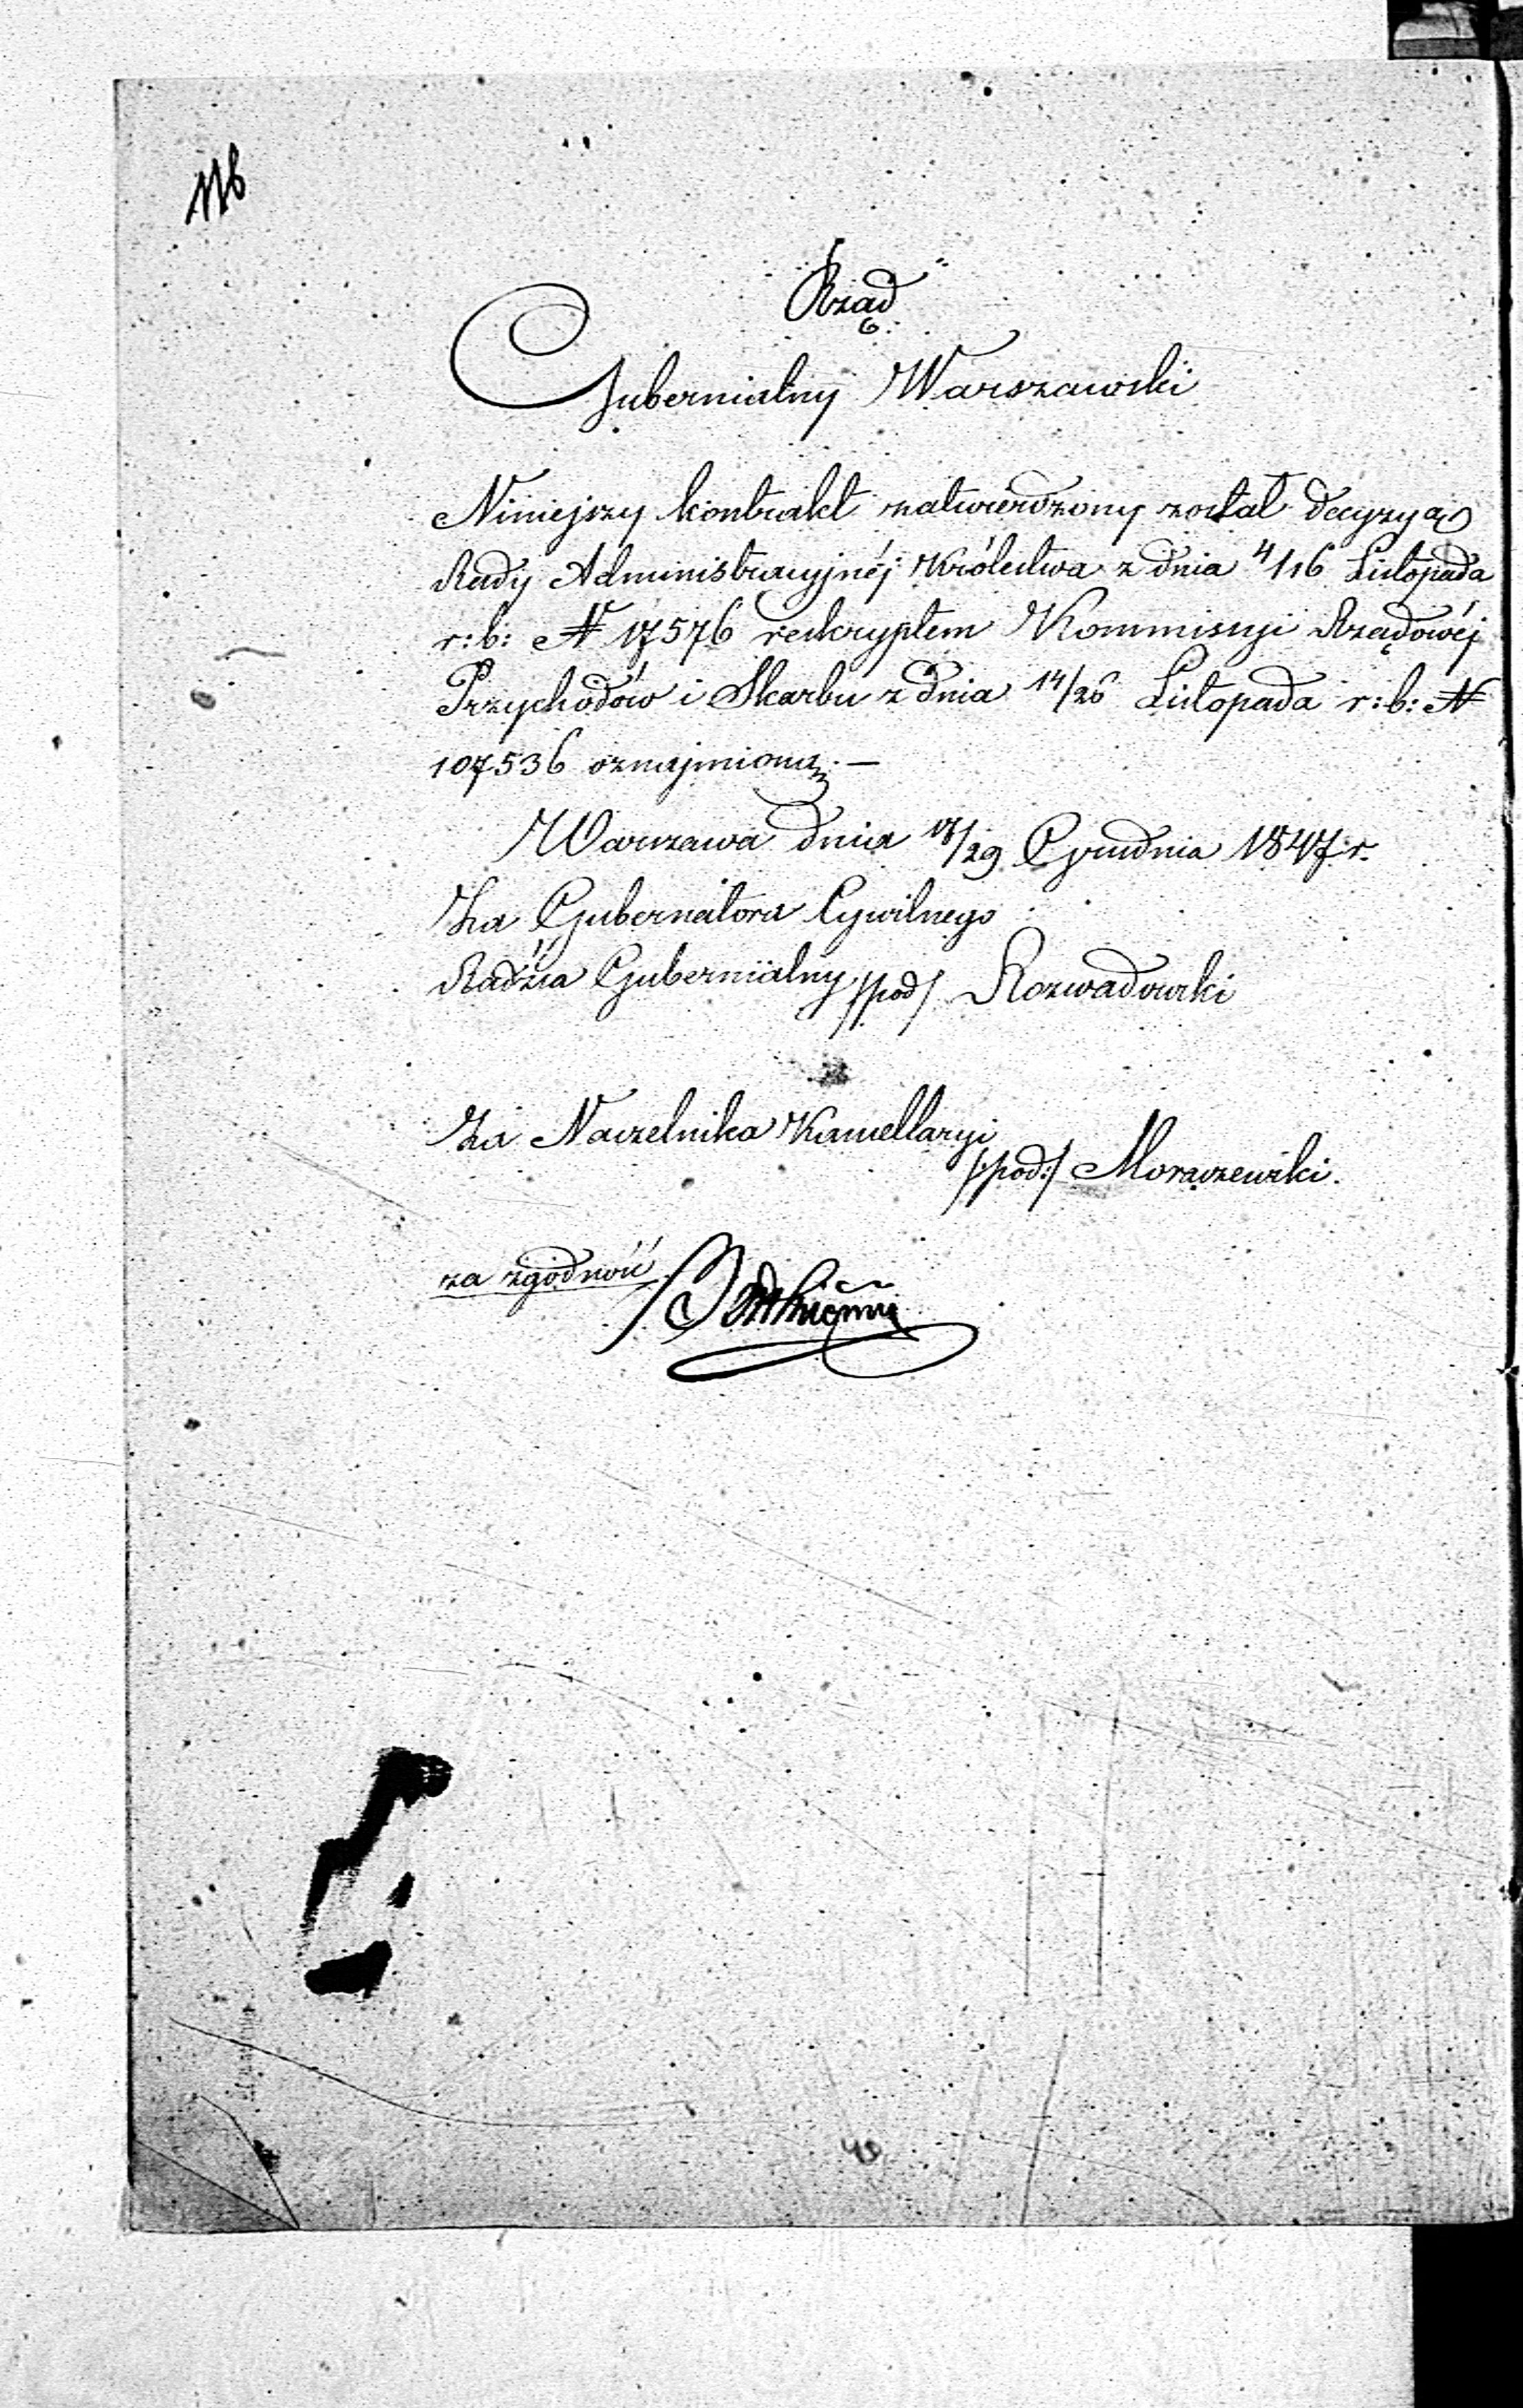 116
Rząd
Gubernialny Warszawski
Niniejszy kontrakt zatwierdzony został decyzyą
Rady Administracyjnéj Królestwa z dnia 4/16 Listopada
r: b: N 17576 reskryptem Kommisyi Rządowéj
Przychodów i Skarbu z dnia 14/26 Listopada r: b: N
107536 oznajmioną. —
Warszawa dnia 17/29 Grudnia 1847 r.
Za Gubernatora Cywilnego
Radźca Gubernialny /pod/ Rozwadowski
Za Naczelnika Kancellaryi
/:pod:/ Moraczewski.
za zgodność